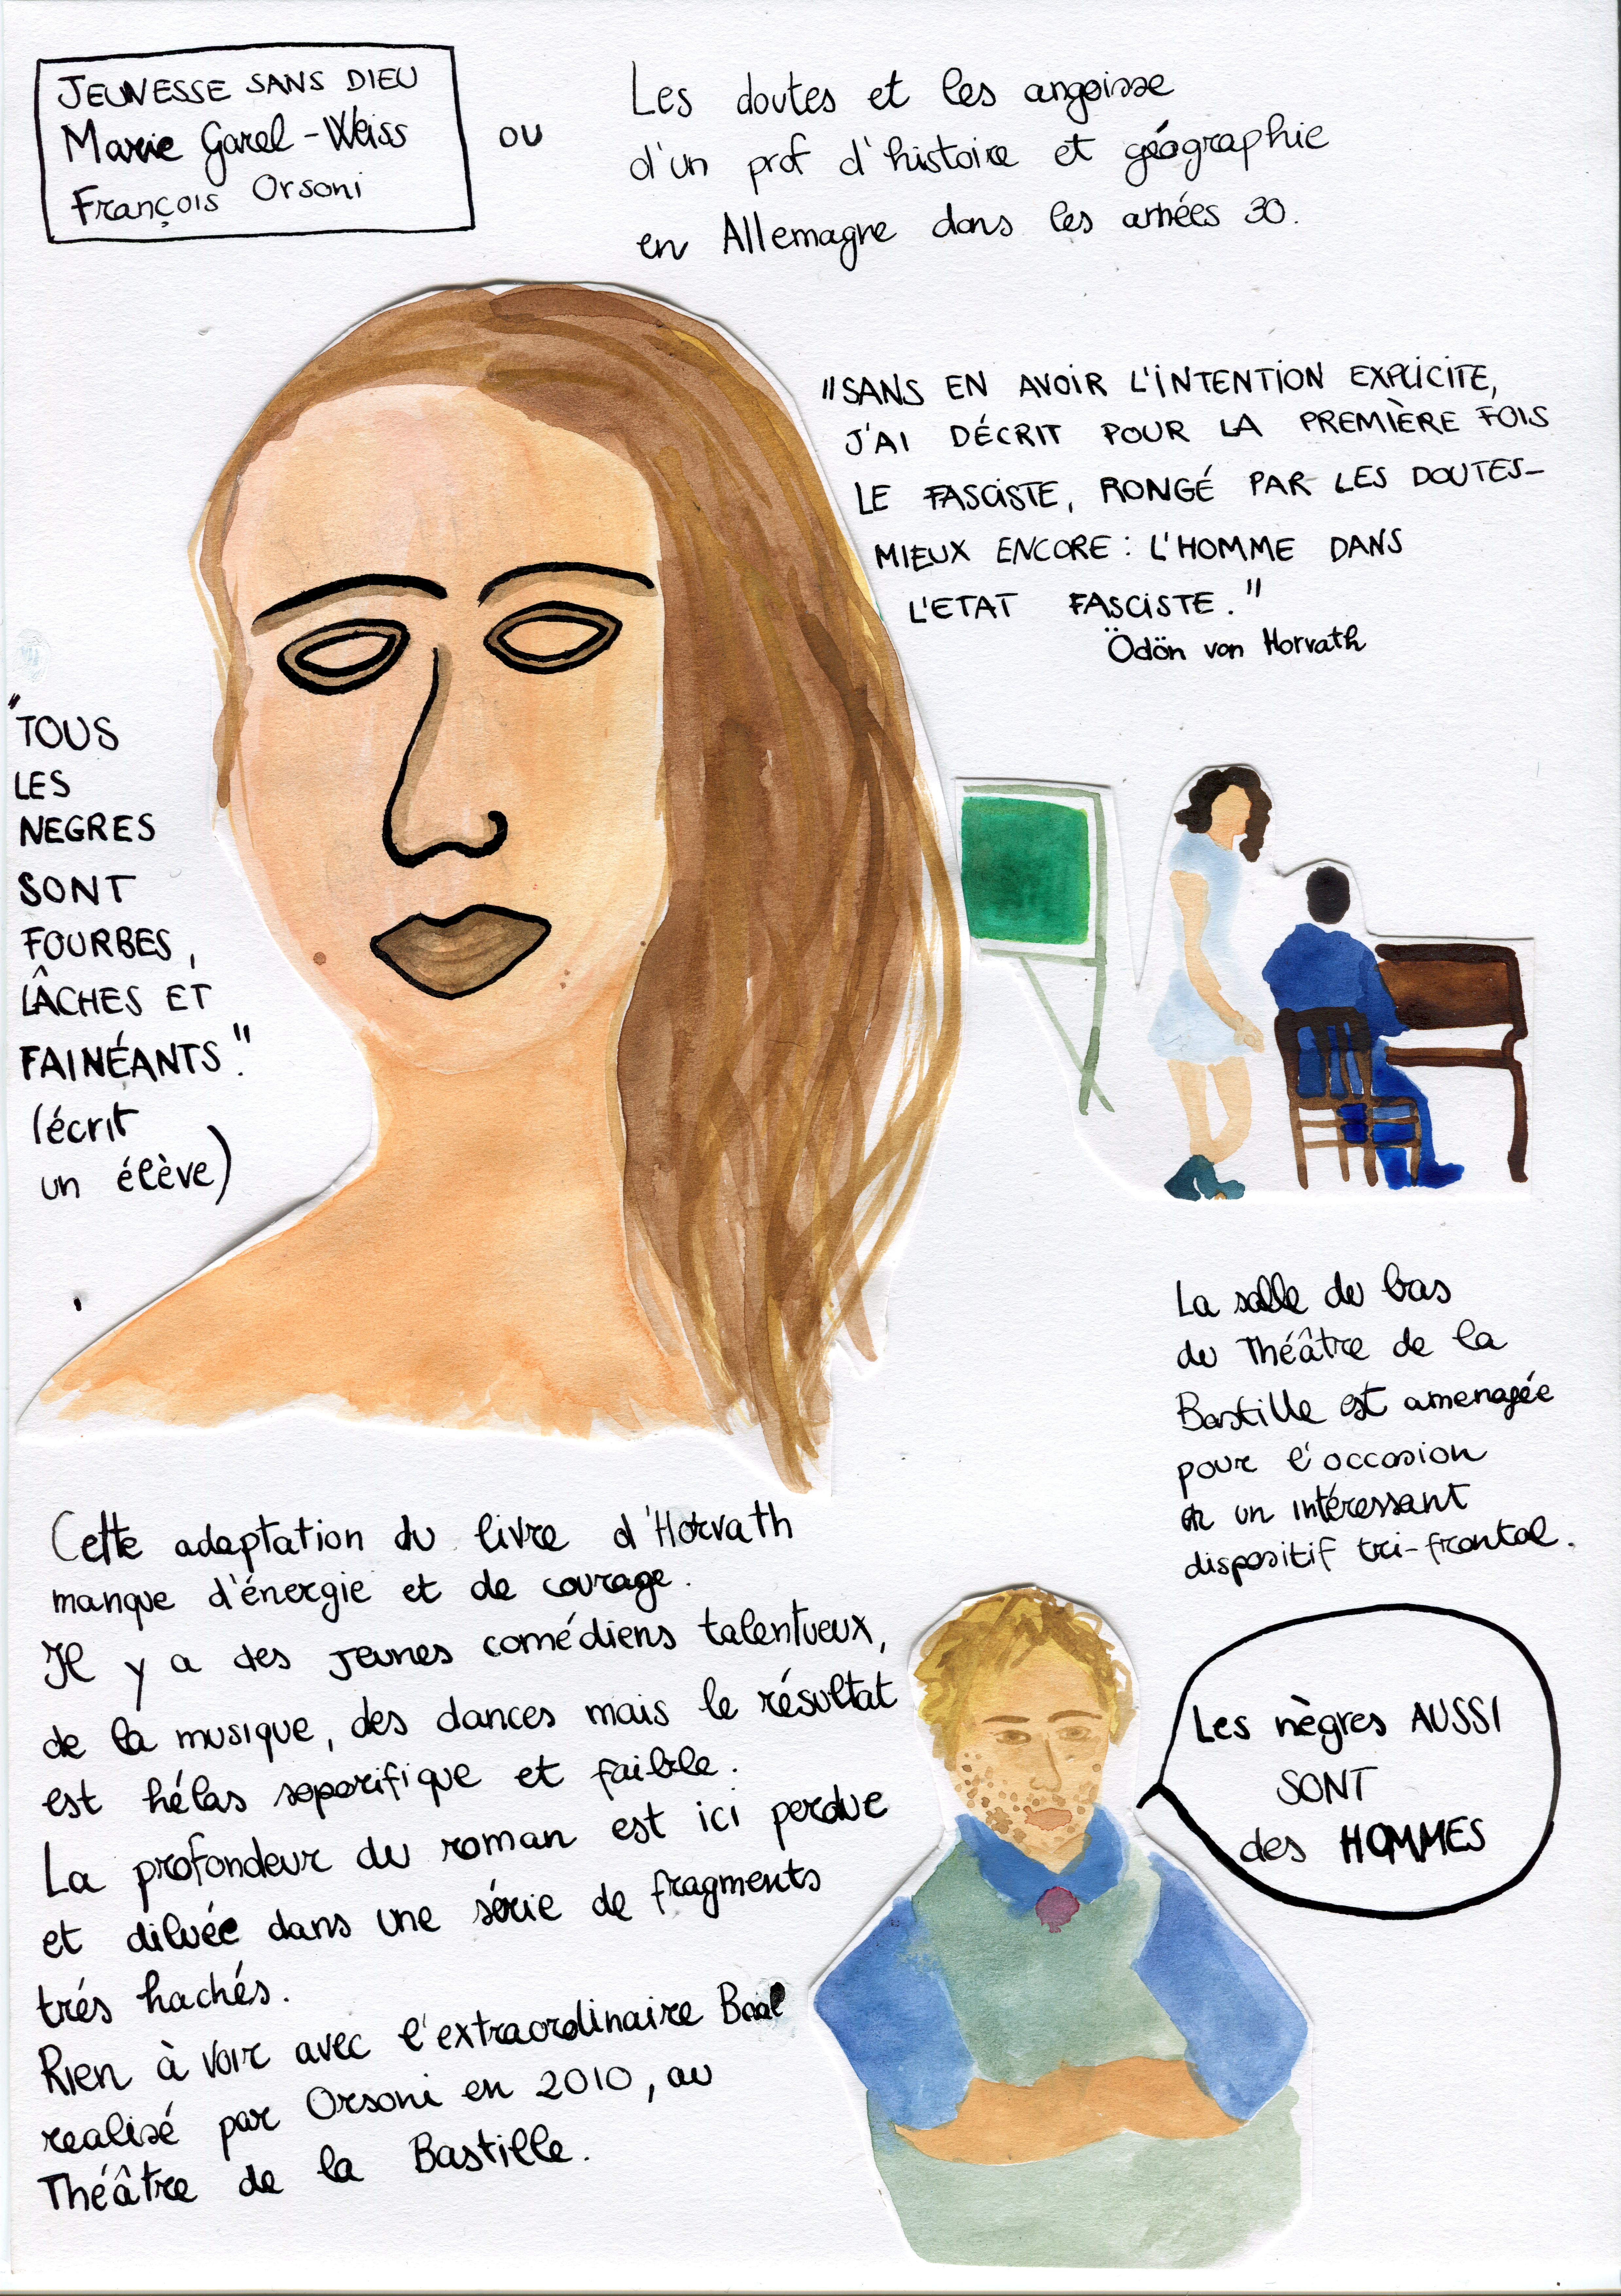 JEUNESSE SANS DIEU
Marie Garel-Weiss
François Orsoni
OU
Les doutes et les angoisse
d'un prof d'histoire et géographie
en Allemagne dans les années 30.
"SANS EN AVOIR L'INTENTION EXPLICITE,
J'AI DÉCRIT POUR LA PREMIÈRE FOIS
LE FASCISTE, RONGÉ PAR LES DOUTES-
MIEUX ENCORE : L'HOMME DANS
L'ETAT FASCISTE."
Ödön von Horvath
"TOUS
LES
NEGRES
SONT
FOURBES,
LÂCHES ET
FAINÉANTS."
(écrit
un élève)
La salle du bas
du Théâtre de la
Bastille est amenagée
pour l'occasion
en un intéressant
dispositif tri-frontal.
Cette adaptation du livre d'Horvath
manque d'énergie et de courage.
Il y a des jeunes comédiens talentueux,
de la musique, des dances mais le résultat
est hélas soporifique et faible.
La profondeur du roman est ici perdue
et diluée dans une série de fragments
trés hachés.
Rien à voir avec l'extraordinaire Baal
realisé par Orsoni en 2010, au
Théâtre de la Bastille.
Les nègres AUSSI
SONT
des HOMMES